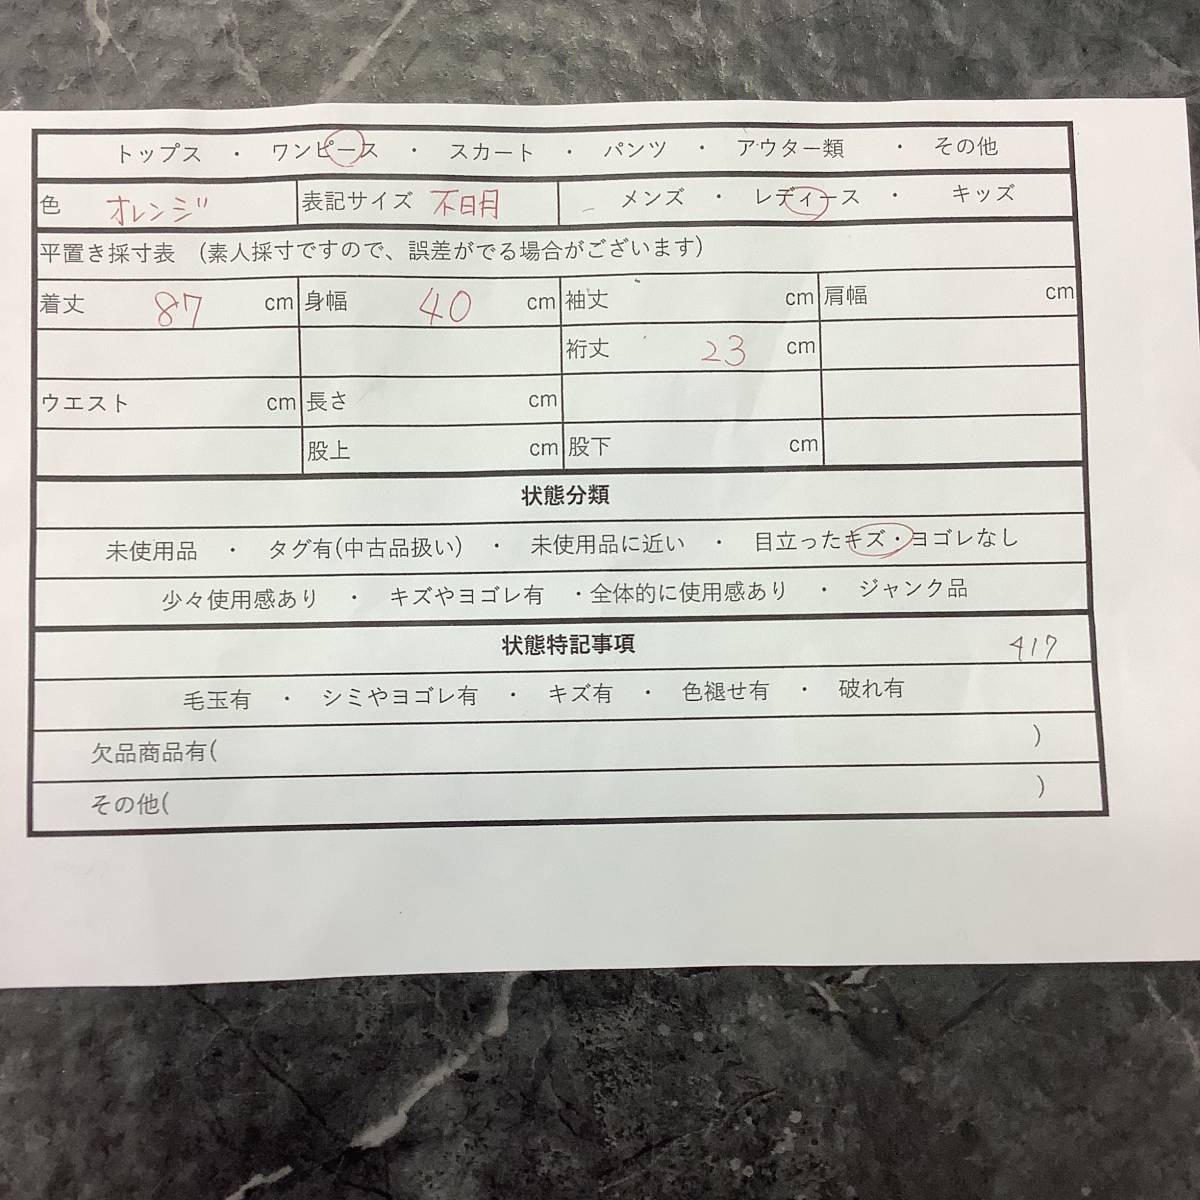 トップス ・ ワンピース ・ スカート ・ パンツ ・ アウター類 ・ その他
色 オレンジ 表記サイズ 不明 メンズ ・ レディース ・ キッズ
平置き採寸表 (素人採寸ですので、誤差がでる場合がございます)
着丈 87 cm 身幅 40 cm 袖丈 cm 肩幅 cm
裄丈 23 cm
ウエスト cm 長さ cm
股上 cm 股下 cm
状態分類
未使用品 ・ タグ有(中古品扱い) ・ 未使用品に近い ・ 目立ったキズ・ヨゴレなし
少々使用感あり ・ キズやヨゴレ有 ・全体的に使用感あり ・ ジャンク品
状態特記事項 417
毛玉有 ・ シミやヨゴレ有 ・ キズ有 ・ 色褪せ有 ・ 破れ有
欠品商品有( )
その他( )